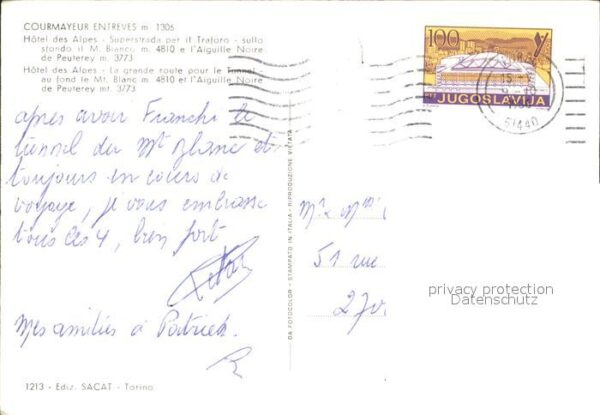 COURMAYEUR ENTREVES m. 1306
Hôtel des Alpes - Superstrada per il Traforo - sullo
sfondo il M. Bianco m. 4810 e l'Aiguille Noire
de Peuterey m. 3773
Hôtel des Alpes - La grande route pour le Tunnel
au fond le Mt. Blanc m. 4810 et l'Aiguille Noire
de Peuterey mt. 3773
après avoir Franchi le
tunnel du Mt Blanc et
toujours en cours de
voyage, je vous embrasse
tous les 4, bien fort
Mes amitiés à Patrick.
R
1213 - Ediz. SACAT - Torino
DA FOTOCOLOR - STAMPATO IN ITALIA - RIPRODUZIONE VIETATA
100
JUGOSLAVIJA
51440
51 rue
270
privacy protection
Datenschutz